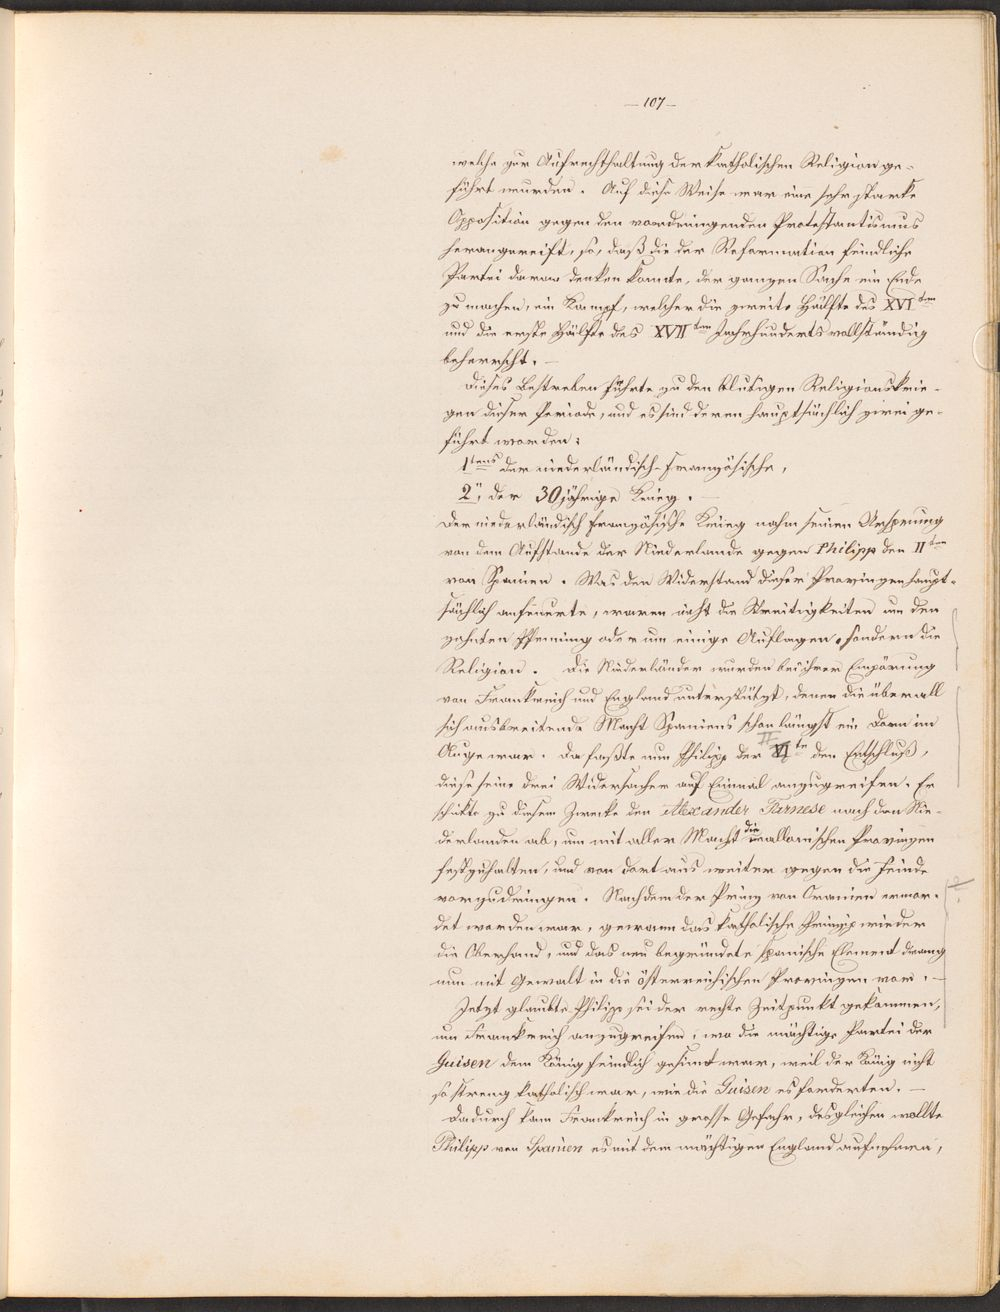 — 107 —
welche zur Aufrechthaltung der katholischen Religion ge-
führt wurden. Auf diese Weise war eine sehr starke
Opposition gegen den vordringenden Protestantismus
herangereift, so, daß die der Reformation feindliche
Partei daran denken konnte, der ganzen Sache ein Ende
zu machen, ein Kampf, welcher die zweite Hälfte des XVI ten
und die erste Hälfte des XVII ten Jahrhunderts vollständig
beherrscht. —
Dieses Bestreben führte zu den blutigen Religionskrie-
gen dieser Periode, und es sind deren hauptsächlich zwei ge-
führt worden:
1tens der niederländisch-französische,
2", der 30jährige Krieg. —
Der niederländisch französische Krieg nahm seinen Ursprung
von dem Aufstande der Niederlande gegen Philipp den II ten
von Spanien. Was den Widerstand dieser Provinzen haupt-
sächlich anfeuerte, waren nicht die Streitigkeiten um den
zehnten Pfenning oder um einige Auflagen, sondern die
Religion. Die Niederländer wurden bei ihrer Empörung
von Frankreich und England unterstützt, denen die überall
sich ausbreitende Macht Spaniens schon längst ein Dorn im
II
Auge war. Da faßte nun Philipp der VI te den Entschluß,
diese seine drei Widersacher auf Einmal anzugreifen. Er
schickte zu diesem Zwecke den Alexander Farnese nach den Nie-
derlanden ab, um mit aller Macht die wallonischen Provinzen
festzuhalten, und von dort aus weiter gegen die Feinde
vorzudringen. Nachdem der Prinz von Oranien ermor-
det worden war, gewann das katholische Prinzip wieder
die Oberhand, und das neu begründete spanische Element drang
nun mit Gewalt in die österreichischen Provinzen vor. —
Jetzt glaubte Philipp sei der rechte Zeitpunkt gekommen,
um Frankreich anzugreifen, wo die mächtige Partei der
Guisen dem König feindlich gesinnt war, weil der König nicht
so streng katholisch war, wie die Guisen es forderten. —
Dadurch kam Frankreich in grosse Gefahr, desgleichen wollte
Philipp von Spanien es mit dem mächtigen England aufnehmen,